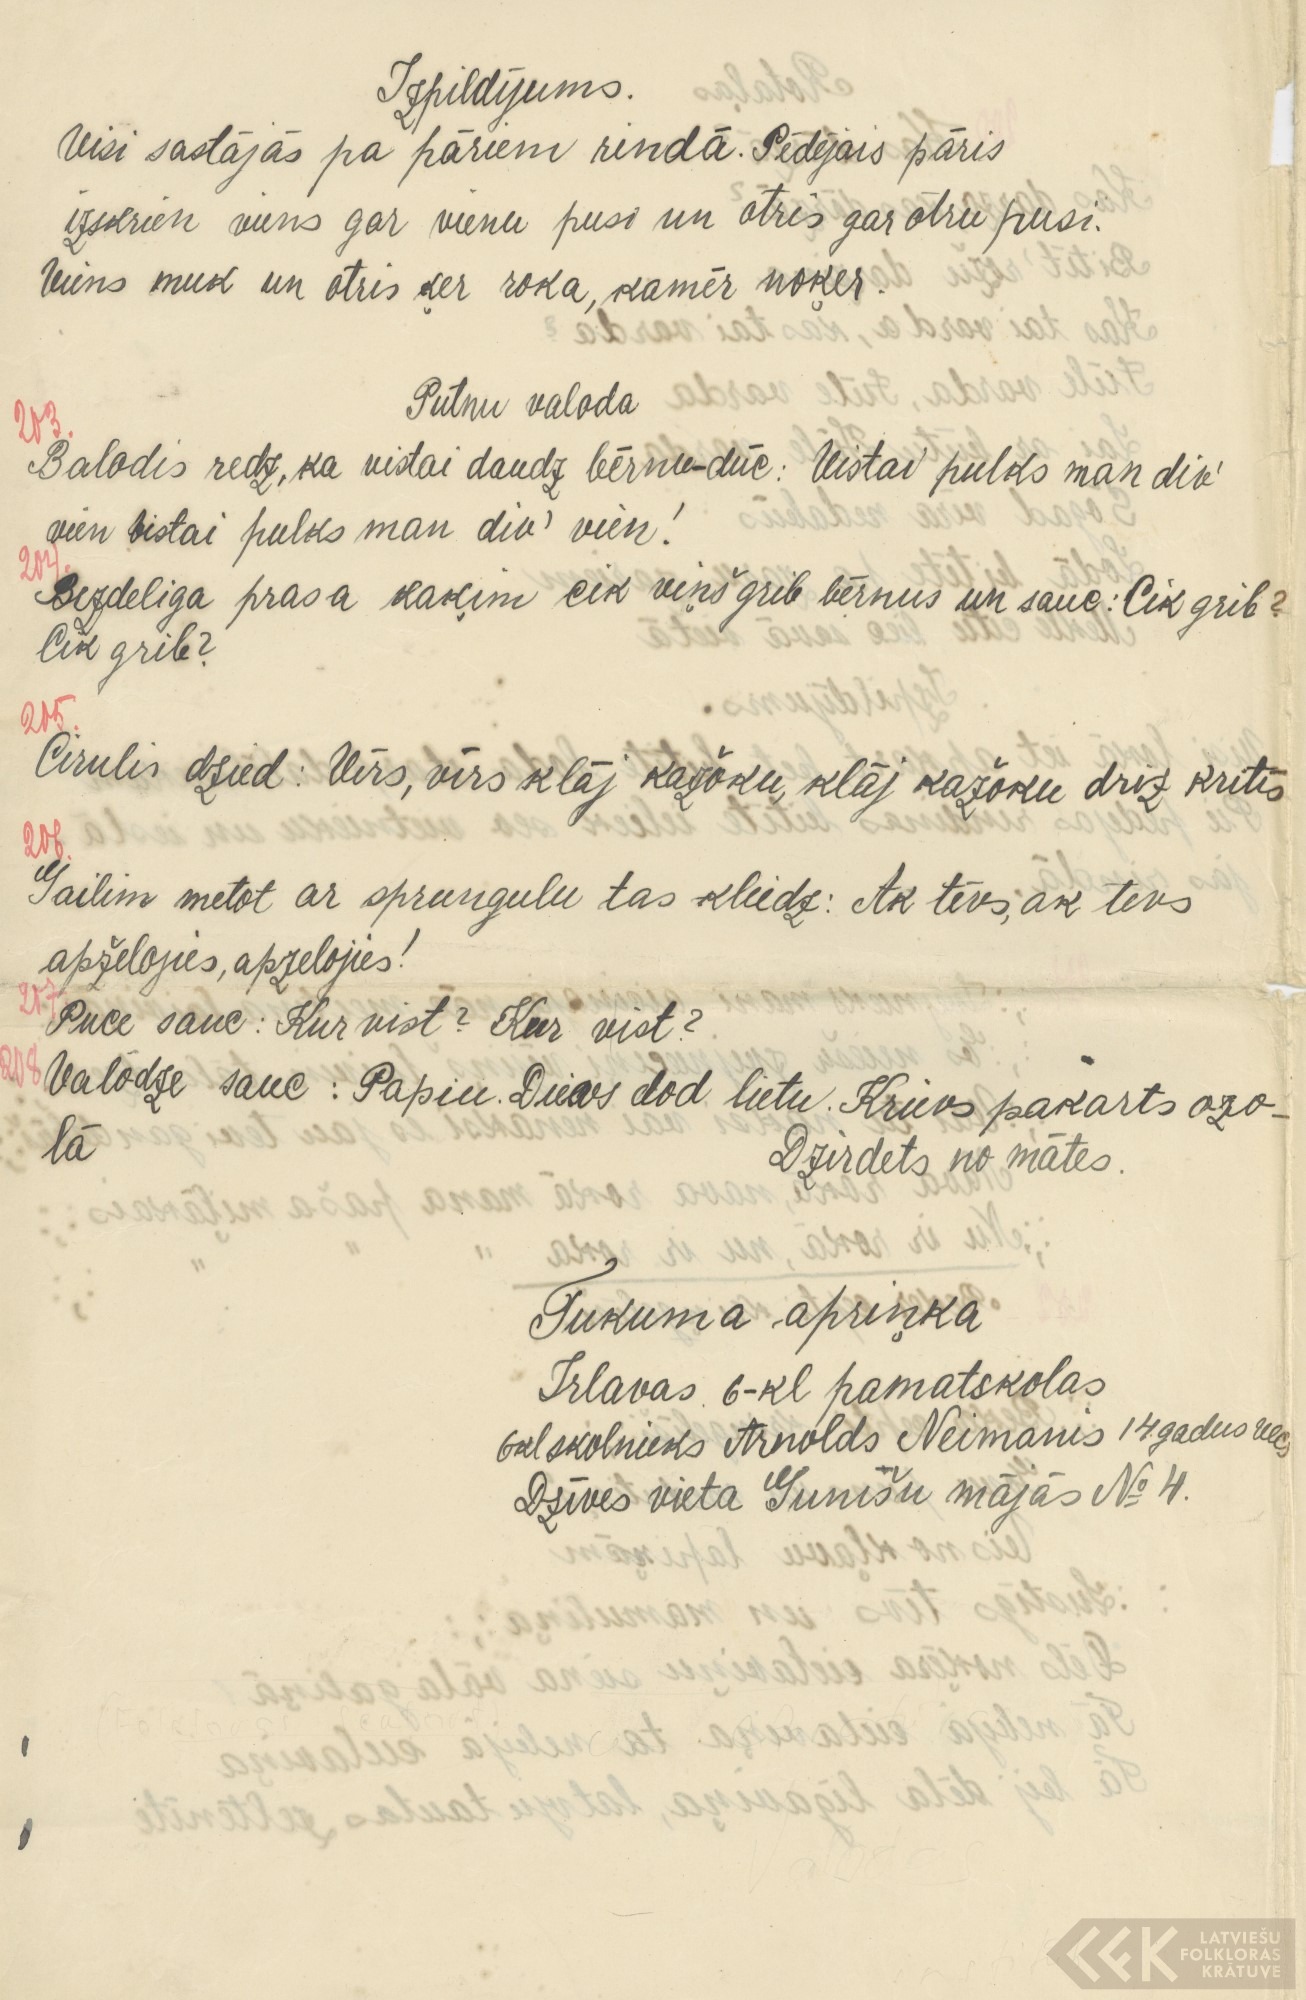 Izpildījums.
Visi sastājās pa pāriem rindā. Pēdējais pāris
izskrien viens gar vienu pusi un otris gar otru pusi.
Viens muk un otris ķer roka, kamēr noķer.
Putnu valoda
203.
Balodis redz, ka vistai daudz bērnu-dūc: Vistai pulks man div'
vien vistai pulks man div' vien!
204.
Bezdeliga prasa kaķim cik viņš grib bērnus un sauc: Cik grib?
Cik grib?
205.
Cirulis dzied: Vīrs, vīrs klāj kažoku, klāj kažoku driz kritīs
206.
Gailim metot ar sprungulu tas kliedz: Ak tēvs, ak tevs
apželojies, apzelojies!
207.
Puce sauc: Kur vist? Kur vist?
208
Valodze sauc: Papiu. Dievs dod lietu. Krievs pakārts ozo-
lā
Dzirdets no mātes.
Tukuma apriņka
Irlavas 6-kl pamatskolas
6kl skolnieks Arnolds Neimanis 14 gadus vecs
Dzīves vieta Gunišu mājās № 4.
LATVIEŠU
FOLKLORAS
KRĀTUVE